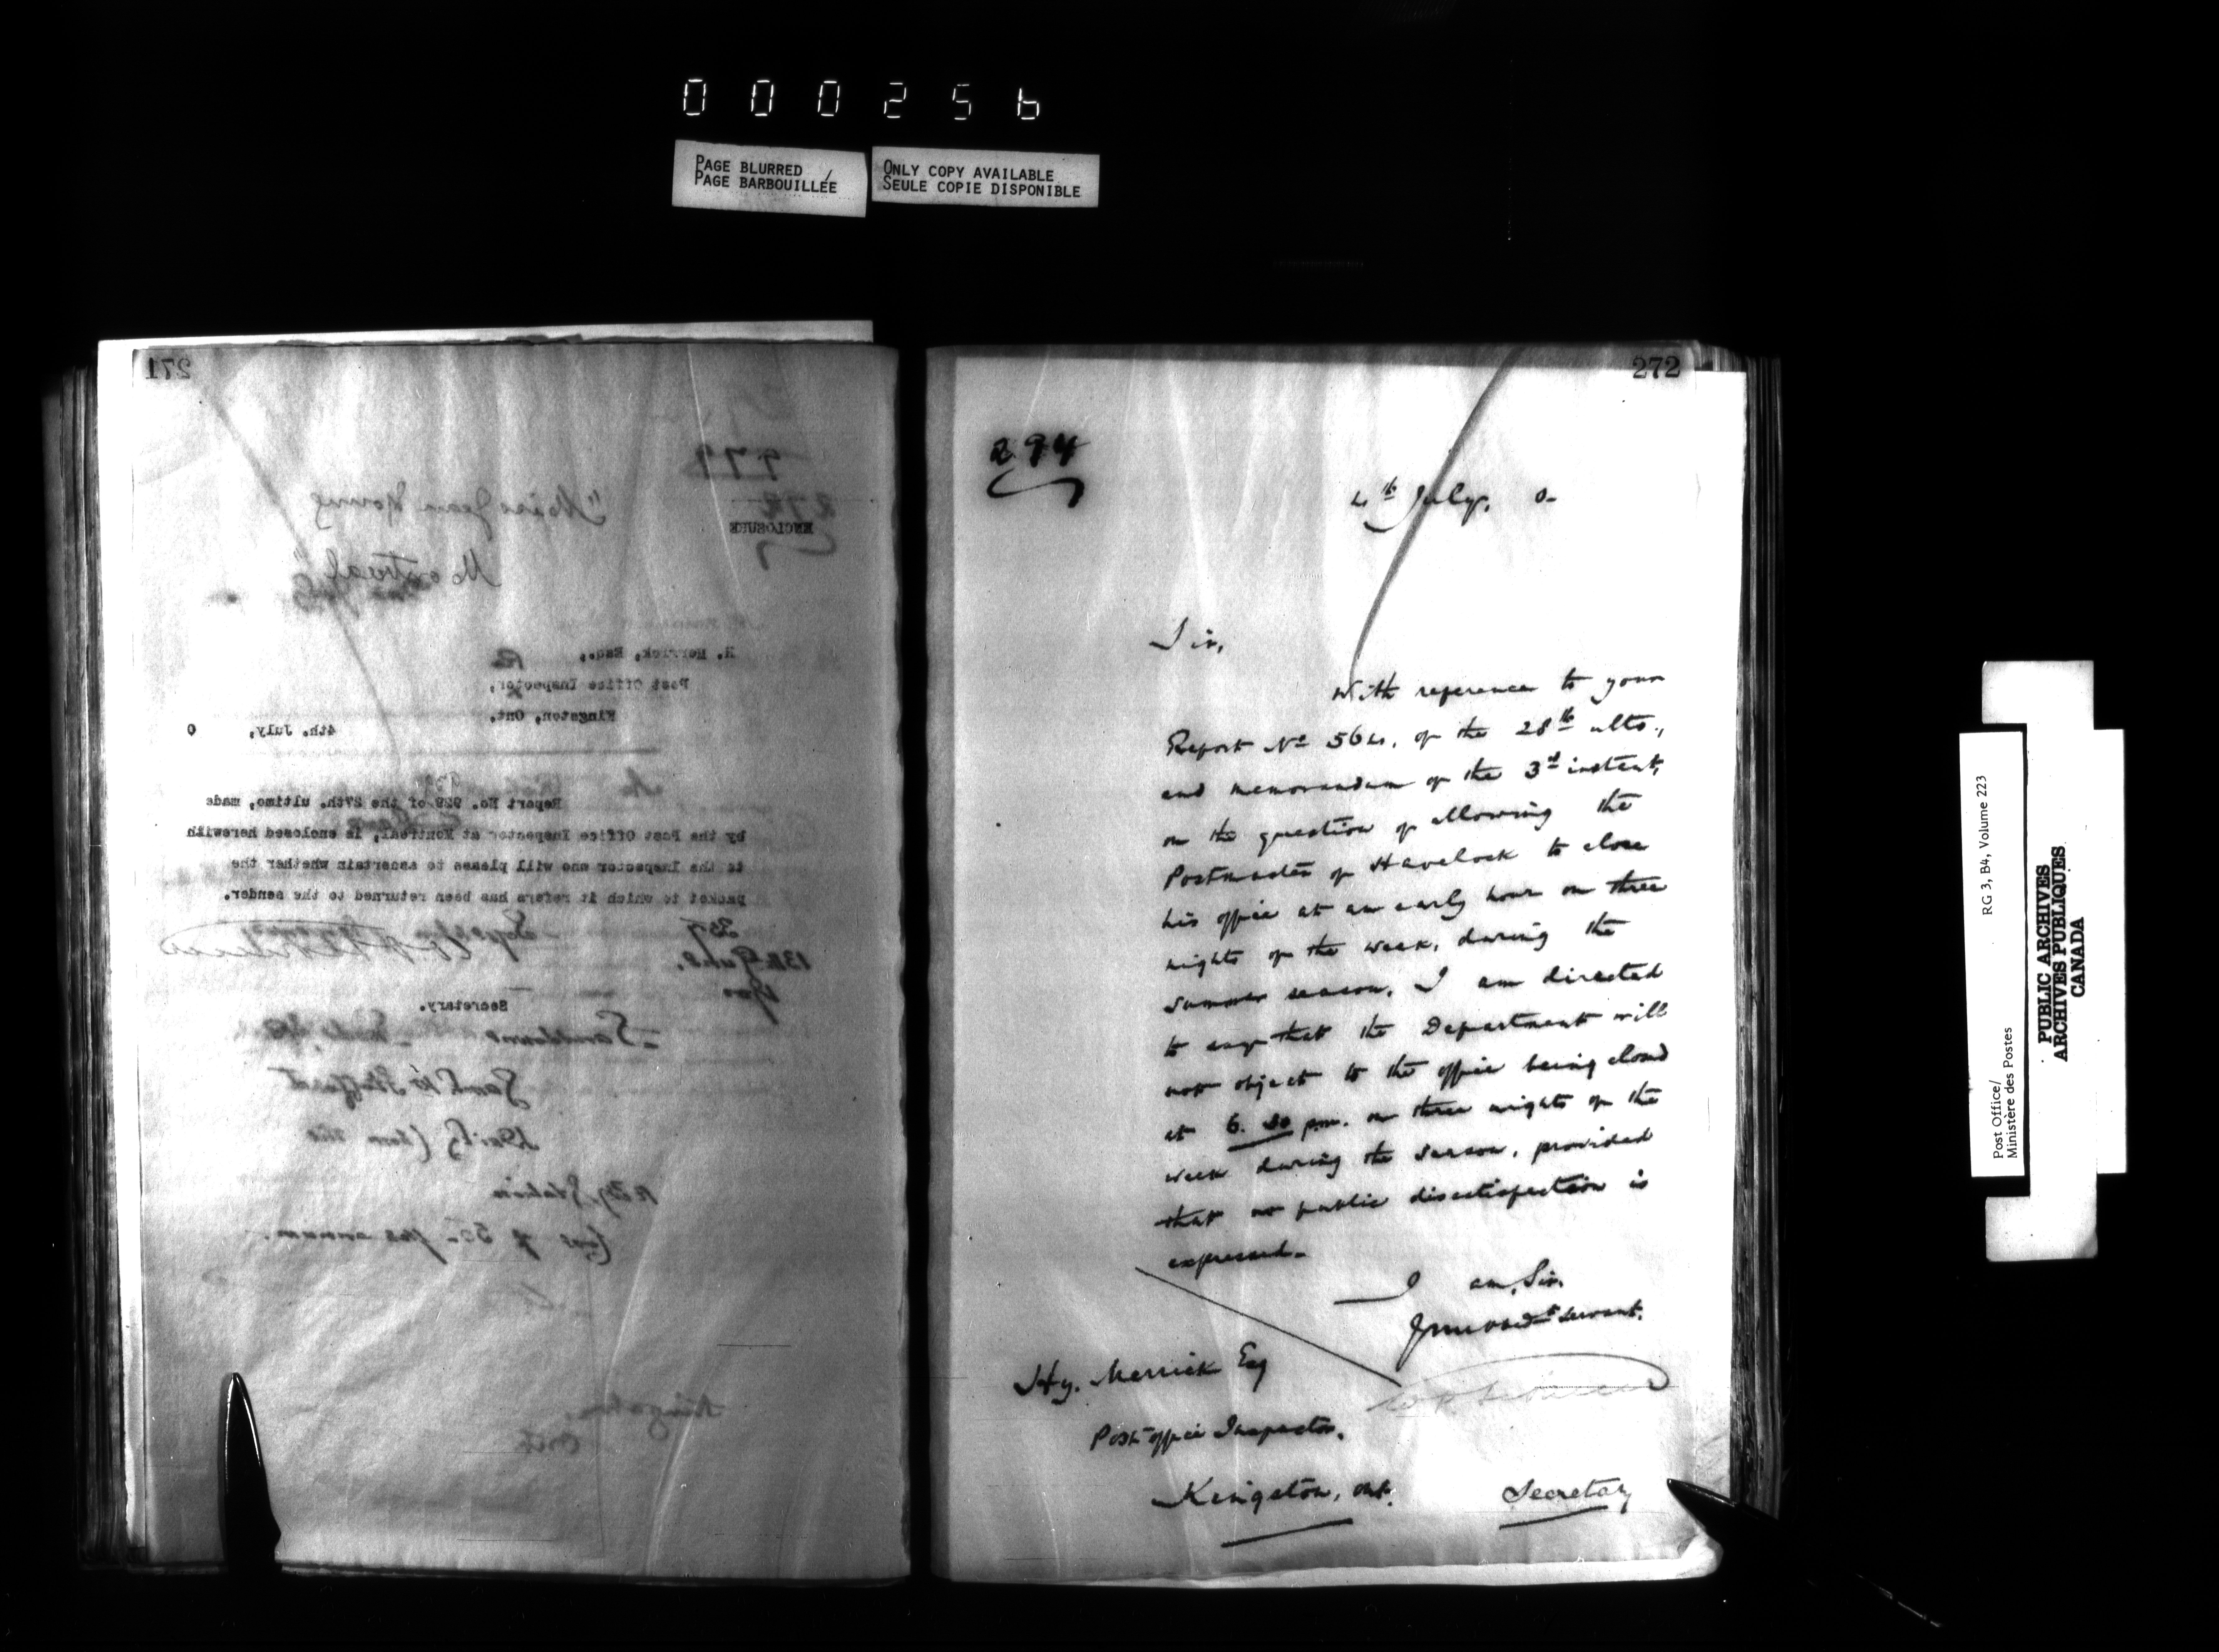 000256
PAGE BLURRED /
PAGE BARBOUILLÉE
ONLY COPY AVAILABLE
SEULE COPIE DISPONIBLE
271
979
272
"Miss Jean Young
Montreal"
ENCLOSURE
H. Merrick, Esq.,
Post Office Inspector,
Kingston, Ont.
4th. July, 0
Report No. 929 of the 27th. ultimo, made
by the Post Office Inspector at Montreal, is enclosed herewith
to the Inspector who will please to ascertain whether the
packet to which it refers has been returned to the sender.
Secretary.
Daily
Rly Station
per annum.
Kingston,
Ont
272
294
4th July, 0-
Sir,
With reference to your
Report No 564, of the 28th ulto.,
and memorandum of the 3rd instant,
on the question of allowing the
Postmaster of Havelock to close
his office at an early hour on three
nights of the week, during the
summer season, I am directed
to say that the Department will
not object to the office being closed
at 6.30 p.m. on three nights of the
week during the season, provided
that no public dissatisfaction is
expressed.
I am, Sir,
Your obedt servant,
Hy. Merrick Esq
Post office Inspector,
Kingston, Ont.
Secretary
Post Office/
Ministère des Postes
RG 3, B4, Volume 223
PUBLIC ARCHIVES
ARCHIVES PUBLIQUES
CANADA